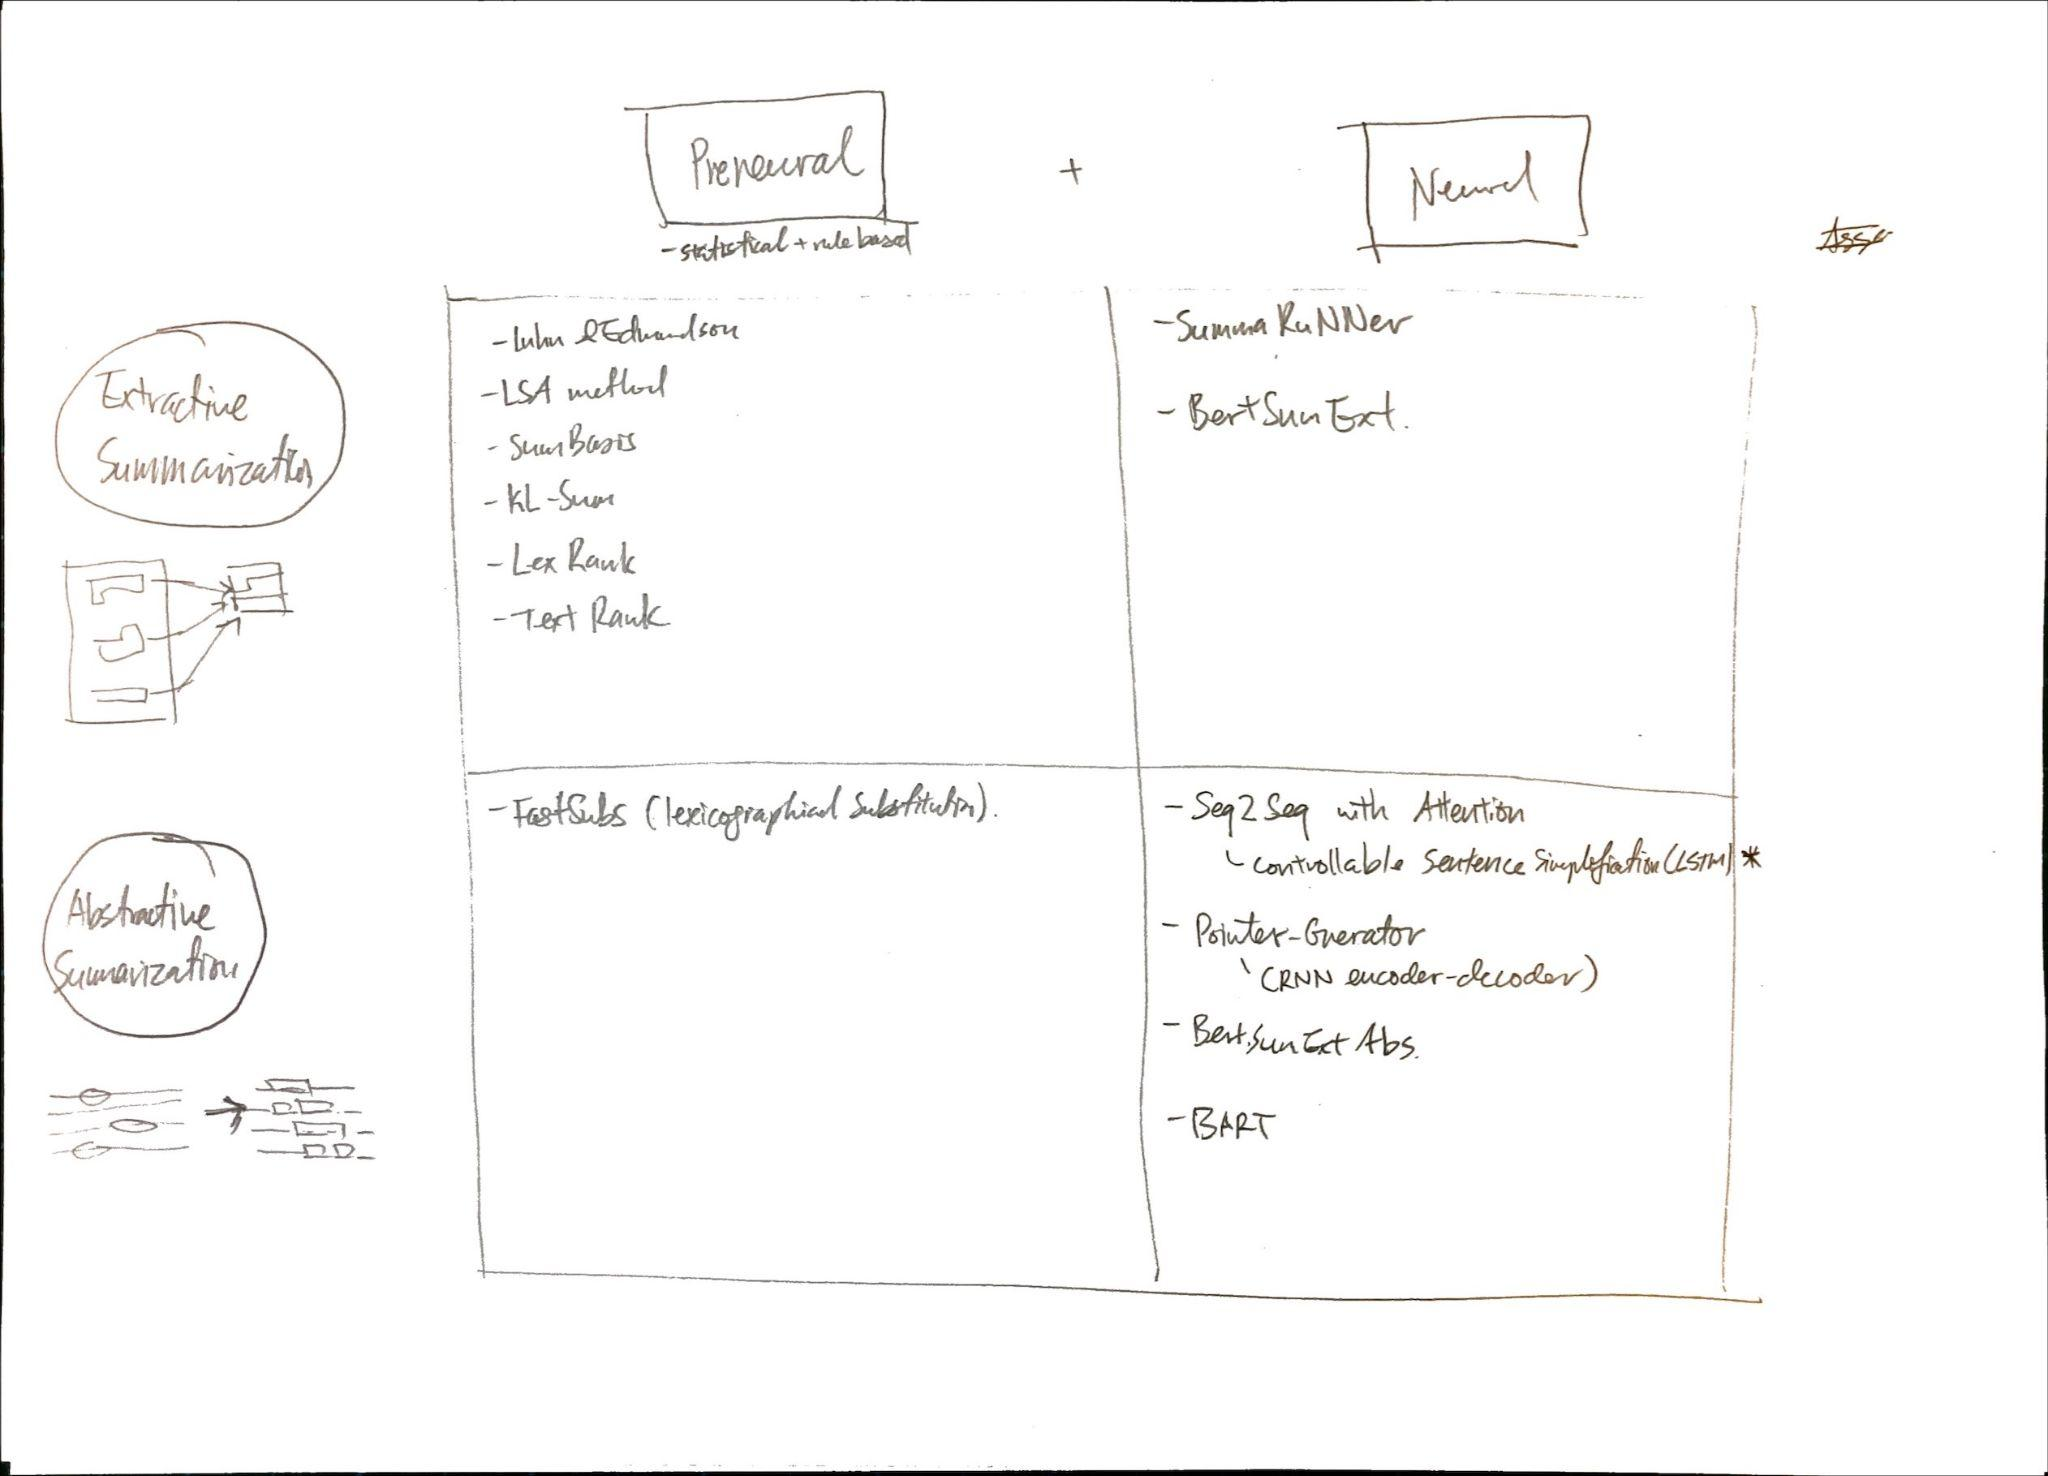 Preneural
+
Neural
- statistical + rule based
Extractive
Summarization
- Luhn & Edmundson
- LSA method
- SumBasis
- KL-Sum
- Lex Rank
- Text Rank
- Summa RuNNer
- BertSumExt.
Abstractive
Summarization
- FastSubs (lexicographical substitution).
- Seq2Seq with Attention
controllable sentence simplification (LSTM) *
- Pointer-Gnerator
(RNN encoder-decoder)
- BertSumExtAbs.
- BART